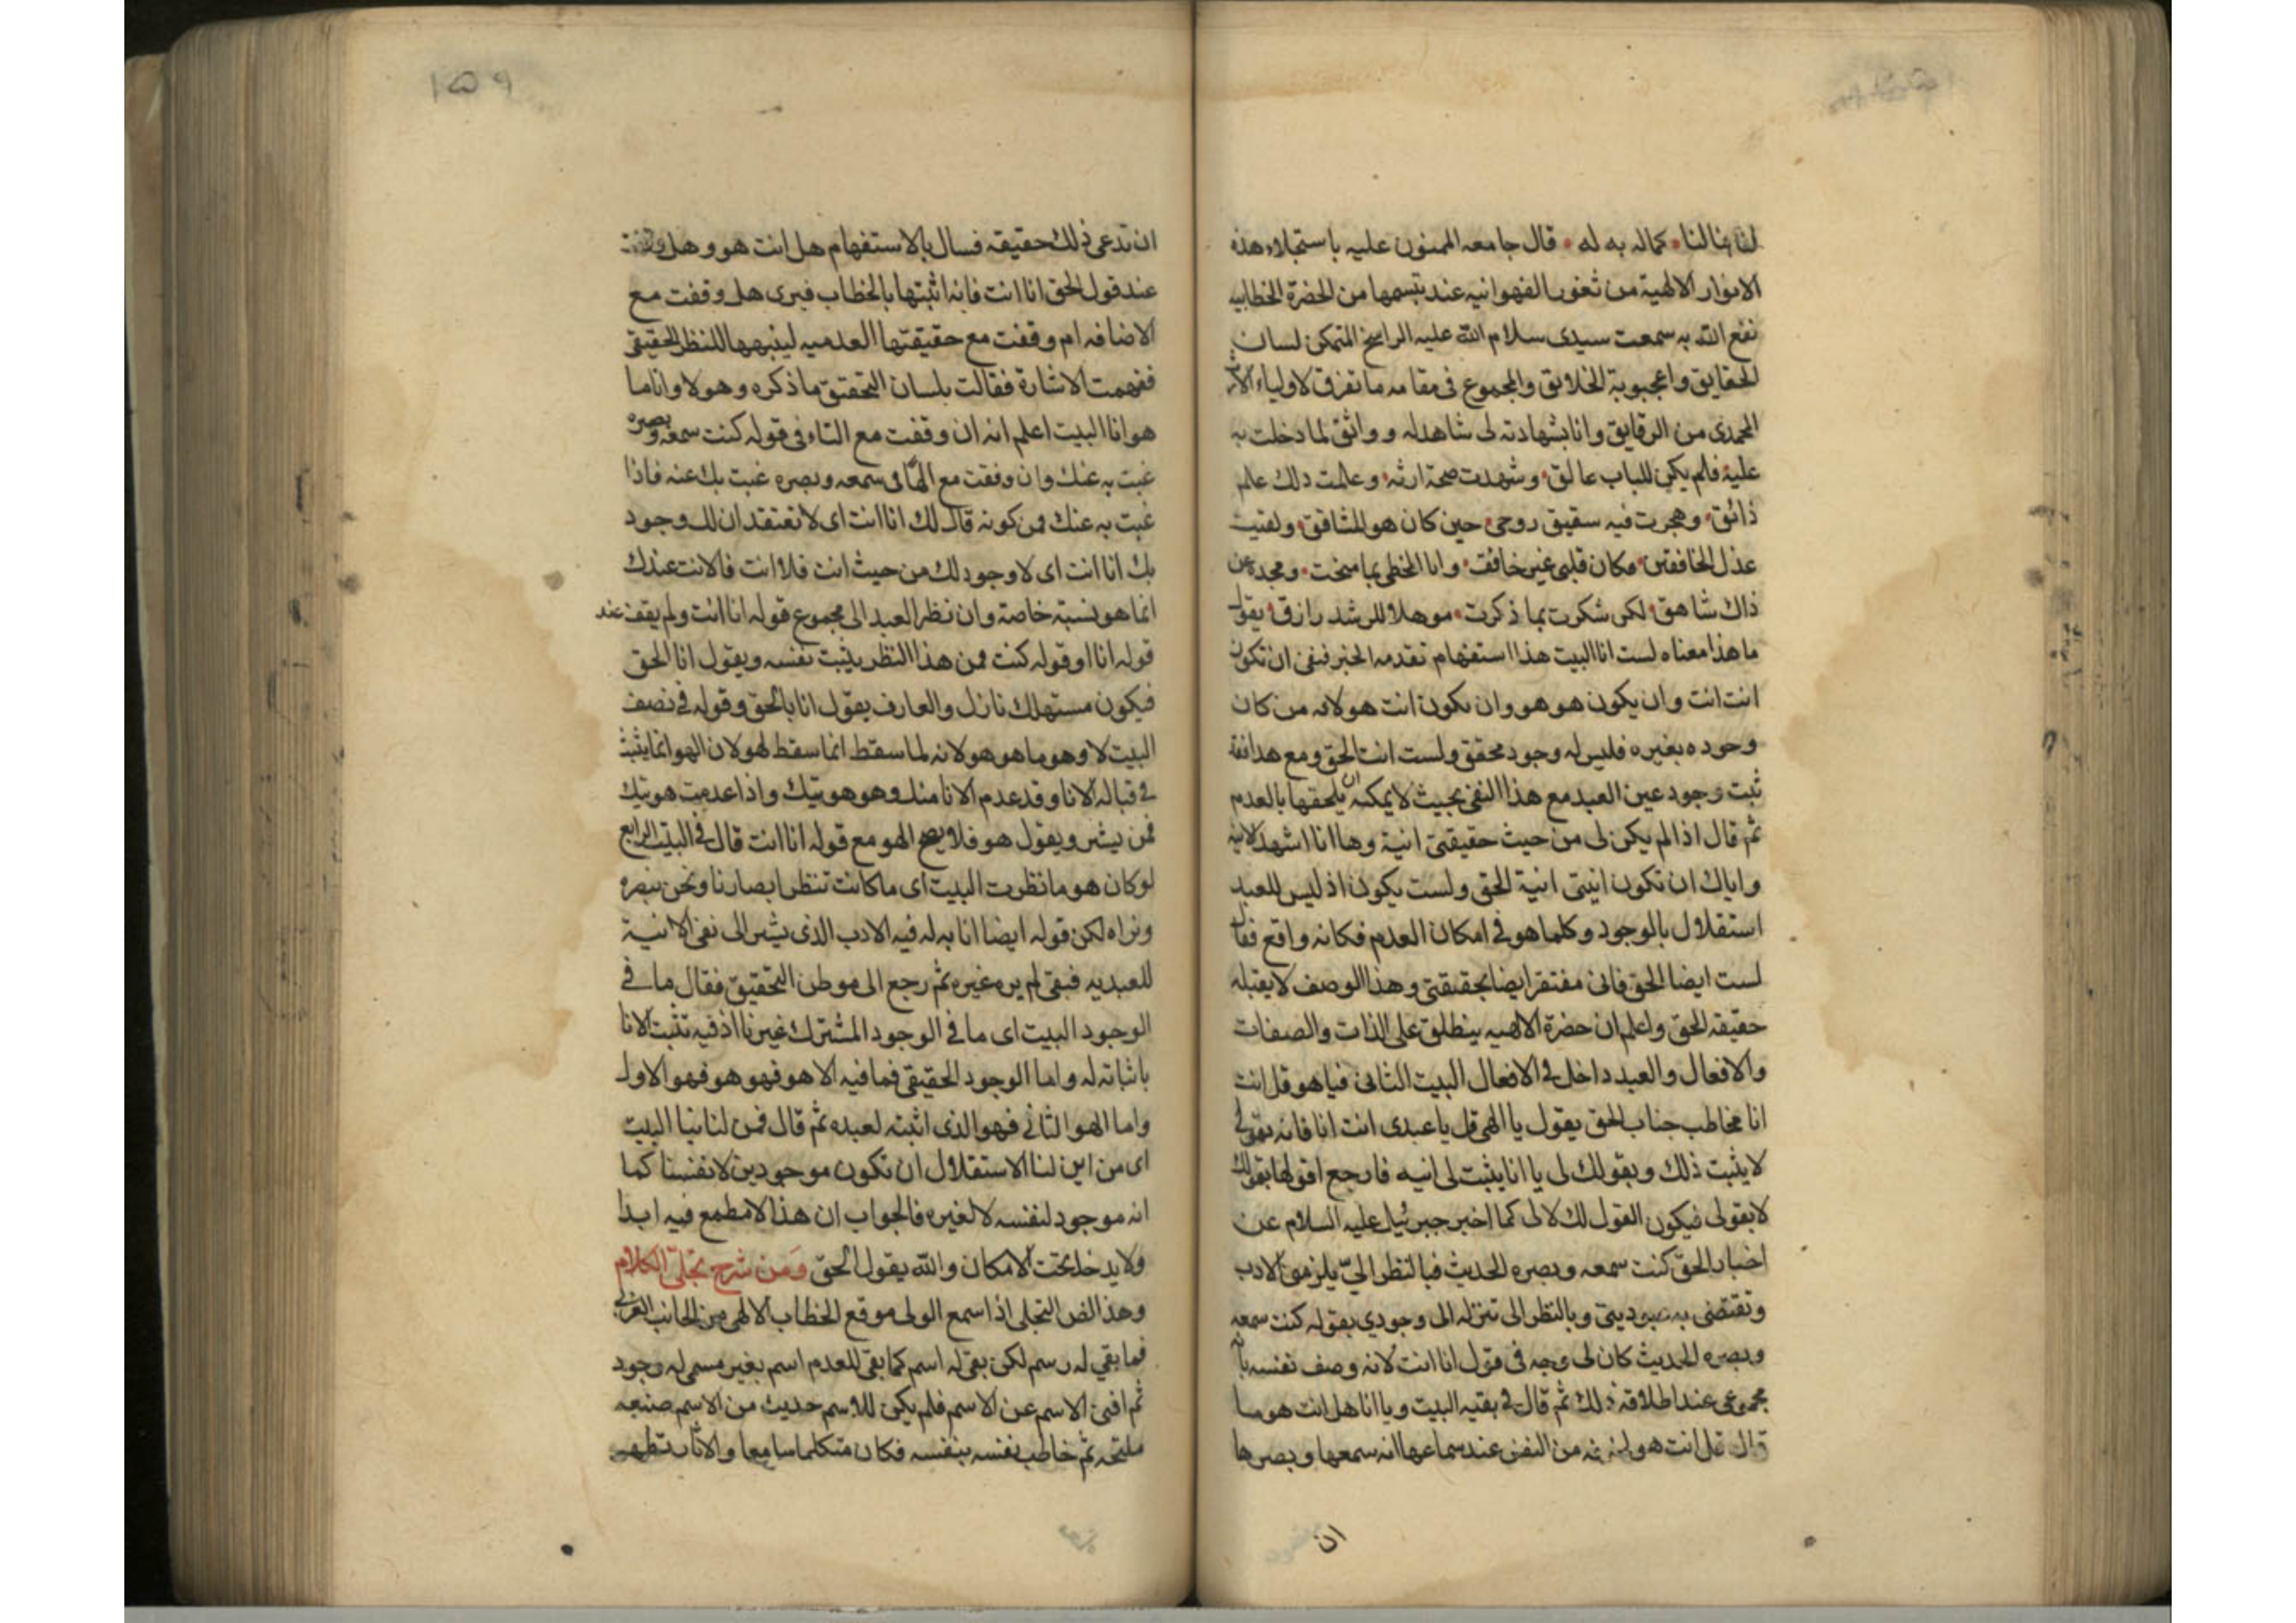 لنا بنا لنا كما له به له قال جامعه الممنون عليه باستجلاء هذه
الانوار الالهية من ثغور الفهوانيه عند تبسمها من الحضرة الخطابيه
نفع الله به سمعت سيدى سلام الله عليه الراسخ المتمكن لسان
الحقايق واعجوبة الخلايق والمجموع فى مقامه ما تفرق لاولياء
المحمدى من الرقايق وانا بشهادته لى شاهد له وواثق لما دخلت به
عليه فلم يكن للباب عالق وشهدت صحة ارثه وعلمت ذلك علم
ذائق وهجرت فيه سقيق روحى حين كان هو المشاقق ولقيت
عذل الخافقين فكان قلبى غير خافق وانا الخطى بما منحت ومجد عن
ذاك شاهق لكن شكرت بما ذكرت موهلا للرشد رازق يقول
ما هذا معناه لست انا البيت هذا استفهام تقدمه الخبر فنفى ان تكون
انت انت وان يكون هو هو وان يكون انت هو لانه من كان
وجوده بغيره فليس له وجود محقق ولست انت الحق ومع هذا فقد
ثبت وجود عين العبد مع هذا النفى بحيث لا يمكنه ان يلحقها بالعدم
ثم قال اذا لم يكن لى من حيث حقيقتى انية وها انا اشهد لانيه
واياك ان تكون انيتى انية الحق ولست يكون اذ ليس للعبد
استقلال بالوجود وكلما هو فى امكان العدم فكانه واقع فقال
لست ايضا الحق فانى مفتقر ايضا بحقيقتى وهذا الوصف لا يقبله
حقيقه الحق واعلم ان حضرة الالهيه ينطلق على الذات والصفات
والافعال والعبد داخل فى الافعال البيت الثانى فيا هو قل انت
انا مخاطب جناب الحق يقول يا الهى قل يا عبدى انت انا فانه بقولى
لا يثبت ذلك وبقولك لى يا انا يثبت لى انيه فارجع اقولها بقولك
لا بقولى فيكون القول لك لا لى كما اخبر جبرئيل عليه السلام عن
اخبار الحق كنت سمعه وبصره الحديث فبالنظر الىّ يلزمنى الادب
وتقتضى به عبوديتى وبالنظر الى تنزله الى وجودي بقوله كنت سمعه
وبصره الحديث كان لى وجه فى قول انا انت لانه وصف نفسه بانه
مجموعى عند اطلاقه ذلك ثم قال فى بقيه البيت ويا انا هل انت هو ما
قال قل انت هو من النفس عند سماعها انه سمعها وبصرها
ان
١٥٩
ان تدعى ذلك حقيقه فسال بالاستفهام هل انت هو وهل
عند قول الحق انا انت فانه اثبتها بالخطاب فيرى هل وقفت مع
الاضافه ام وقفت مع حقيقتها العدميه لينبهها للنظر الحقيقى
ففهمت الاشارة فقالت بلسان التحقيق ما ذكره وهو لا وانا ما
هو انا البيت اعلم انه ان وقفت مع التاء فى قوله كنت سمعه وبصره
غبت به عنك وان وقفت مع الهاء فى سمعه وبصره غبت بك عنه فاذا
غبت به عنك فمن كونه قال لك انا انت اى لا تعتقد ان لك وجود
بك انا انت اى لا وجود لك من حيث انت فلا انت فالانت عندك
انما هو نسبة خاصة وان نظر العبد الى مجموع قوله انا انت ولم يقف عند
قوله انا او قوله كنت فمن هذا النظر يثبت نفسه ويقول انا الحق
فيكون مستهلك نازل والعارف يقول انا بالحق وقوله فى نصف
البيت لا وهو ما هو هو لانه لما سقط انما سقط لهو لان الهو انما يثبت
فى قبالة الانا وقد عدم الانا منك وهو هويتك واذا عدمت هويتك
فمن يشير ويقول هو فلا يصح الهو مع قوله انا انت قال فى البيت الرابع
لو كان هو ما نظرت البيت اى ما كانت تنظر ابصارنا ونحن نبصره
ونراه لكن قوله ايضا انا به له فيه الادب الذى يشير الى نفى الانية
للعبد به فبقى لم يره غيره ثم رجع الى موطن التحقيق فقال ما فى
الوجود البيت اى ما فى الوجود المشترك غيرنا اذ فيه تثبت الانا
باثباته له واما الوجود الحقيقى فما فيه الا هو فهو هو فهو الاول
واما الهو الثانى فهو الذى اثبته لعبده ثم قال فمن لنا بنا البيت
اى من اين لنا الاستقلال ان نكون موجودين لانفسنا كما
انه موجود لنفسه لا لغيره فالجواب ان هذا لا مطمع فيه ابدا
ولا يدخل تحت الامكان والله يقول الحق ومن شرح تجلى الكلام
وهذا نص التجلى اذا سمع الولى موقع الخطاب الالهى من الجانب الغربى
فما بقي له رسم لكن بقى له اسم كما بقى للعدم اسم بغير مسمى له وجود
ثم افنى الاسم عن الاسم فلم يكن للاسم حديث من الاسم صنعه
مليحه ثم خاطب نفسه بنفسه فكان متكلما سامعا والاثار تظهر